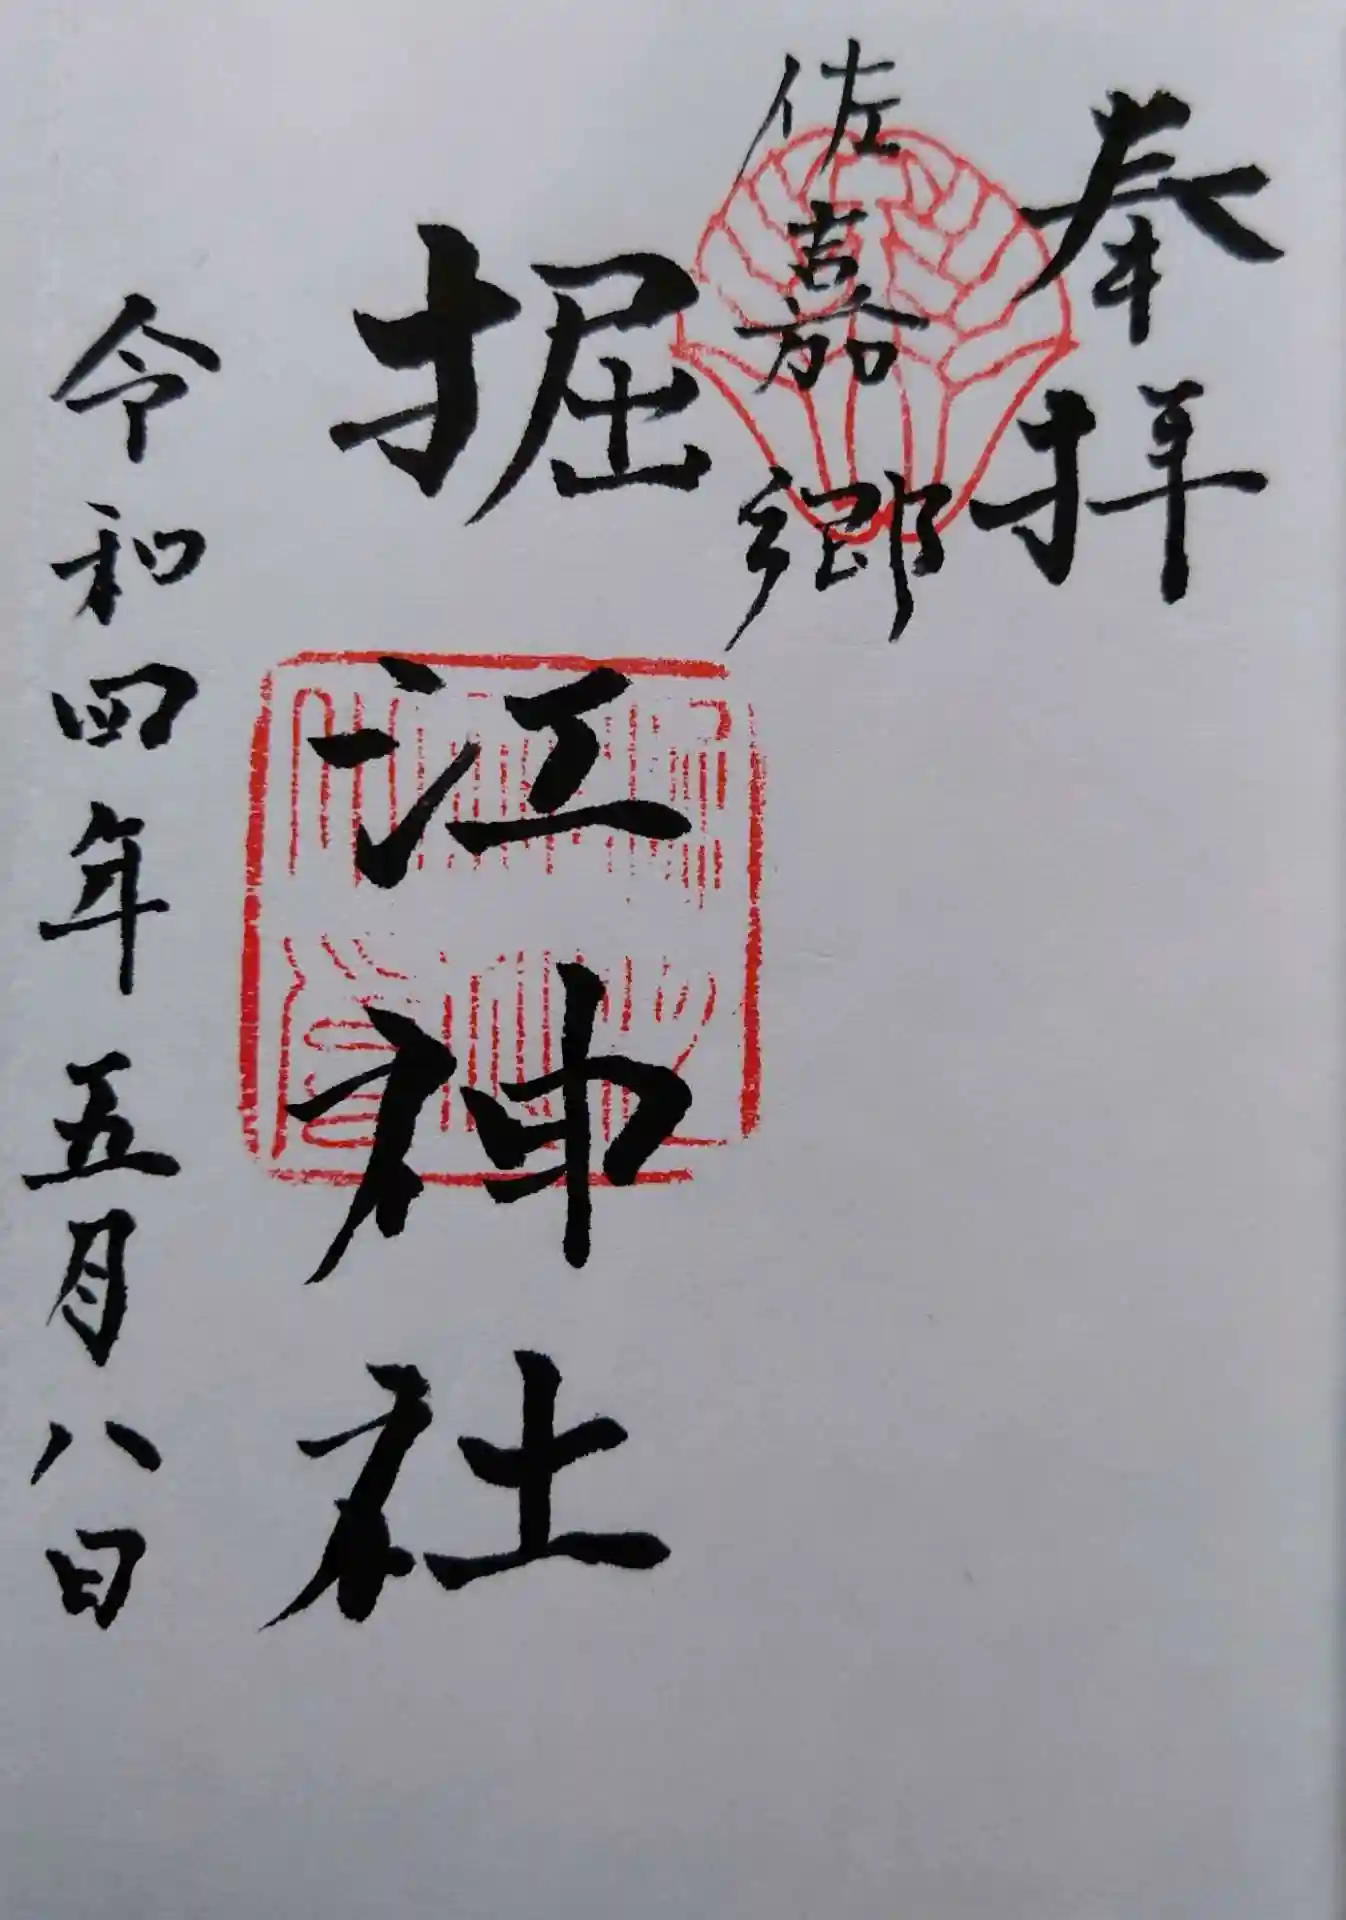 奉拝
佐嘉郷
掘江神社
令和四年五月八日